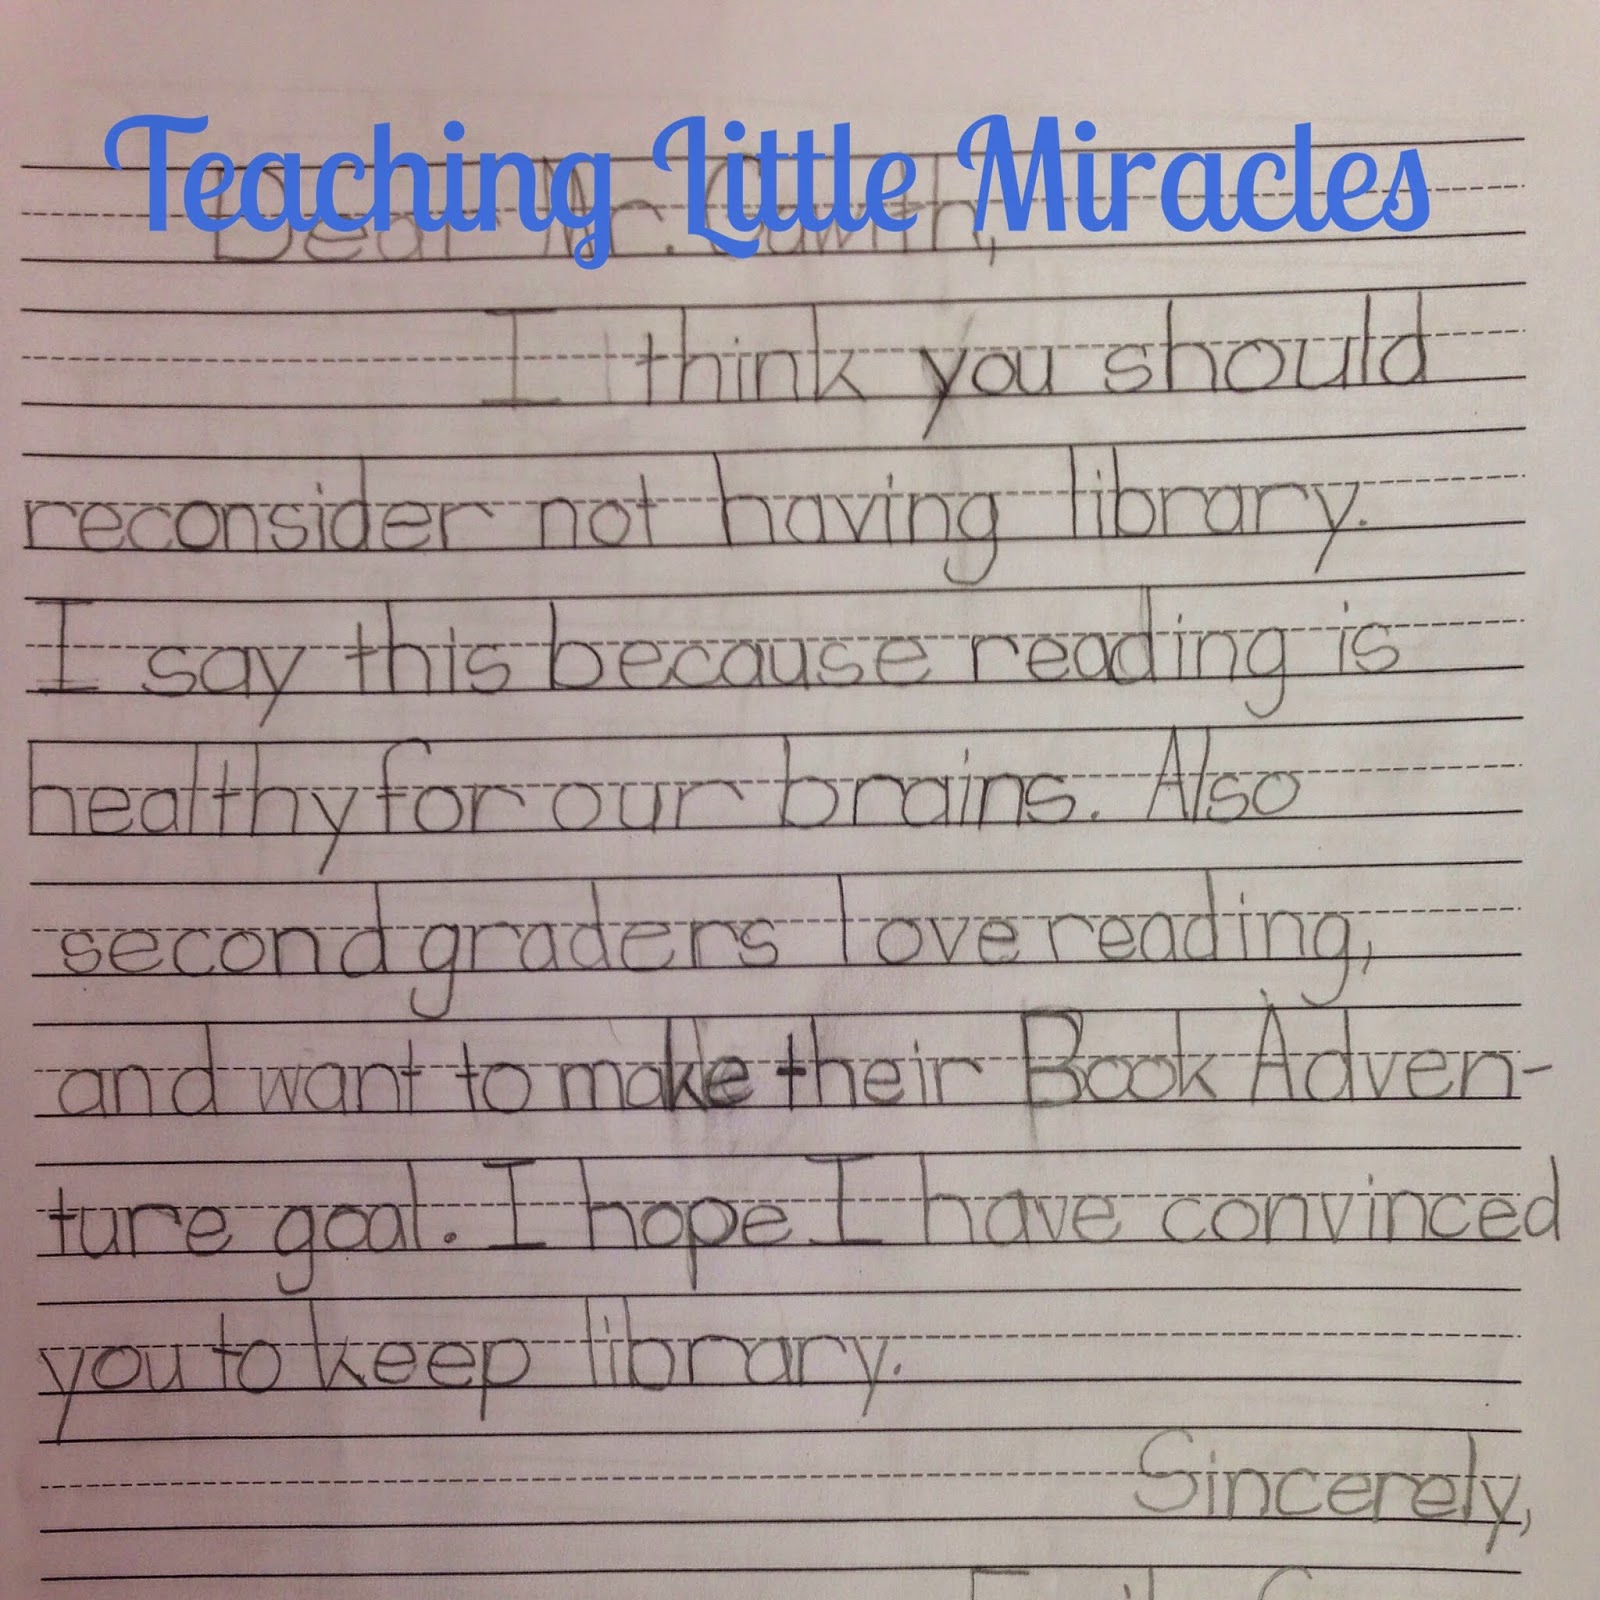 Teaching Little Miracles
Dear Mr.
I think you should
reconsider not having library.
I say this because reading is
healthy for our brains. Also
second graders love reading,
and want to make their Book Adven-
ture goal. I hope I have convinced
you to keep library.
Sincerely,